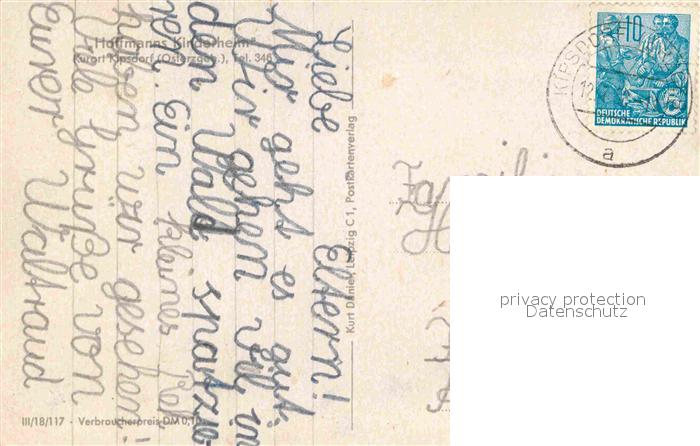 "Hoffmanns Kinderheim"
Kurort Kipsdorf (Osterzgeb.), Tel. 346
Liebe Eltern!
Mir gehs es gut.
Wir gehen vil in
den Wald spatzie
ren. Ein kleines Reh
haben wir gesehen!
Viele Grüße von
Eurer Waltraud
Kurt Daniel, Leipzig C 1, Postkartenverlag
III/18/117 · Verbraucherpreis DM 0,10
10
DEUTSCHE
DEMOKRATISCHE REPUBLIK
KIPSDORF
a
Familie
privacy protection
Datenschutz